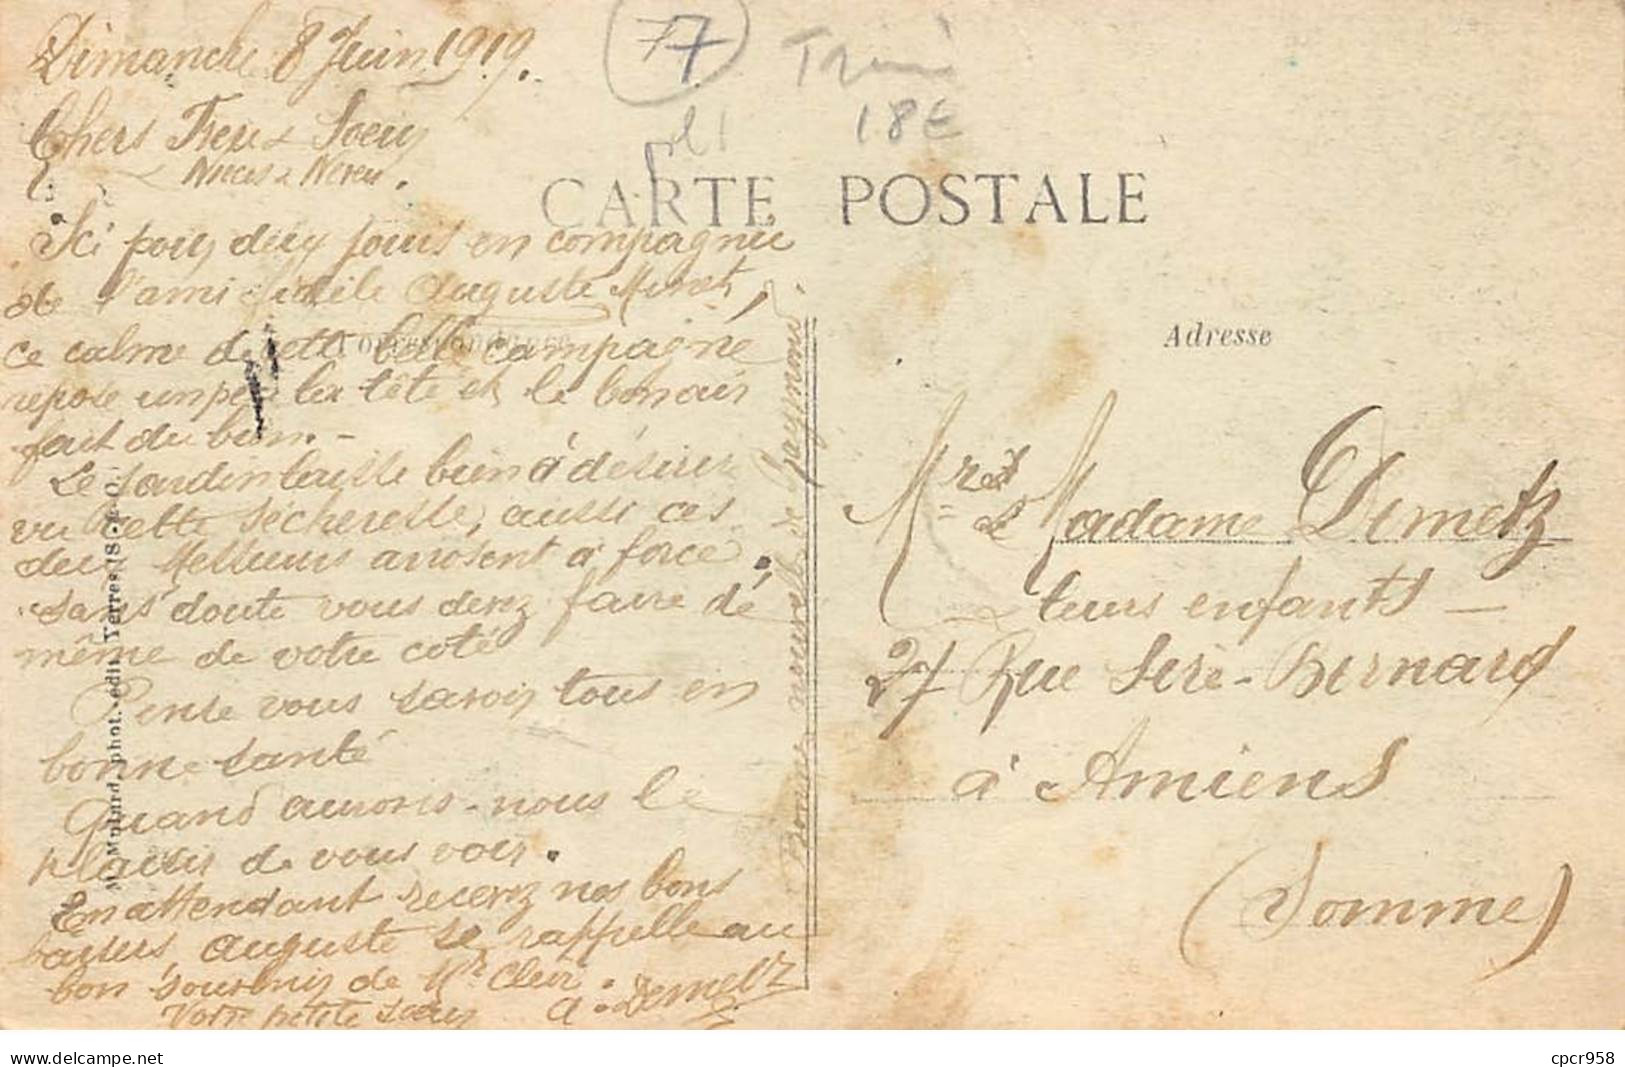 77
18E
CARTE POSTALE
Correspondance
Adresse
Dimanche 8 Juin 1919.
Chers Frere & Soeur
& Nieces & Neveu.
Ici pour deux jours en compagnie
de l'ami fidèle Auguste
ce calme de cette belle campagne
repose un peu la tête et le bon air
fait du bien. -
Le jardin laisse bien à désirer
vu cette sécheresse, aussi ces
deux Messieurs arrosent à force.
Sans doute vous devez faire de
même de votre coté
Pense vous savoir tous en
bonne santé
Quand aurons-nous le
plaisir de vous voir.
En attendant recevez nos bons
baisers, Auguste se rappelle au
bon souvenir de Mr Cleri.
Votre petite soeur A. Demetz
Bonne nouvelle de Raymond
Mr et Madame Demetz
& leurs enfants -
27 Rue Seré-Bernard
à Amiens
(Somme)
phot.-édit. Yerres (S.-&-O.)
delcampe.net
cpcr958